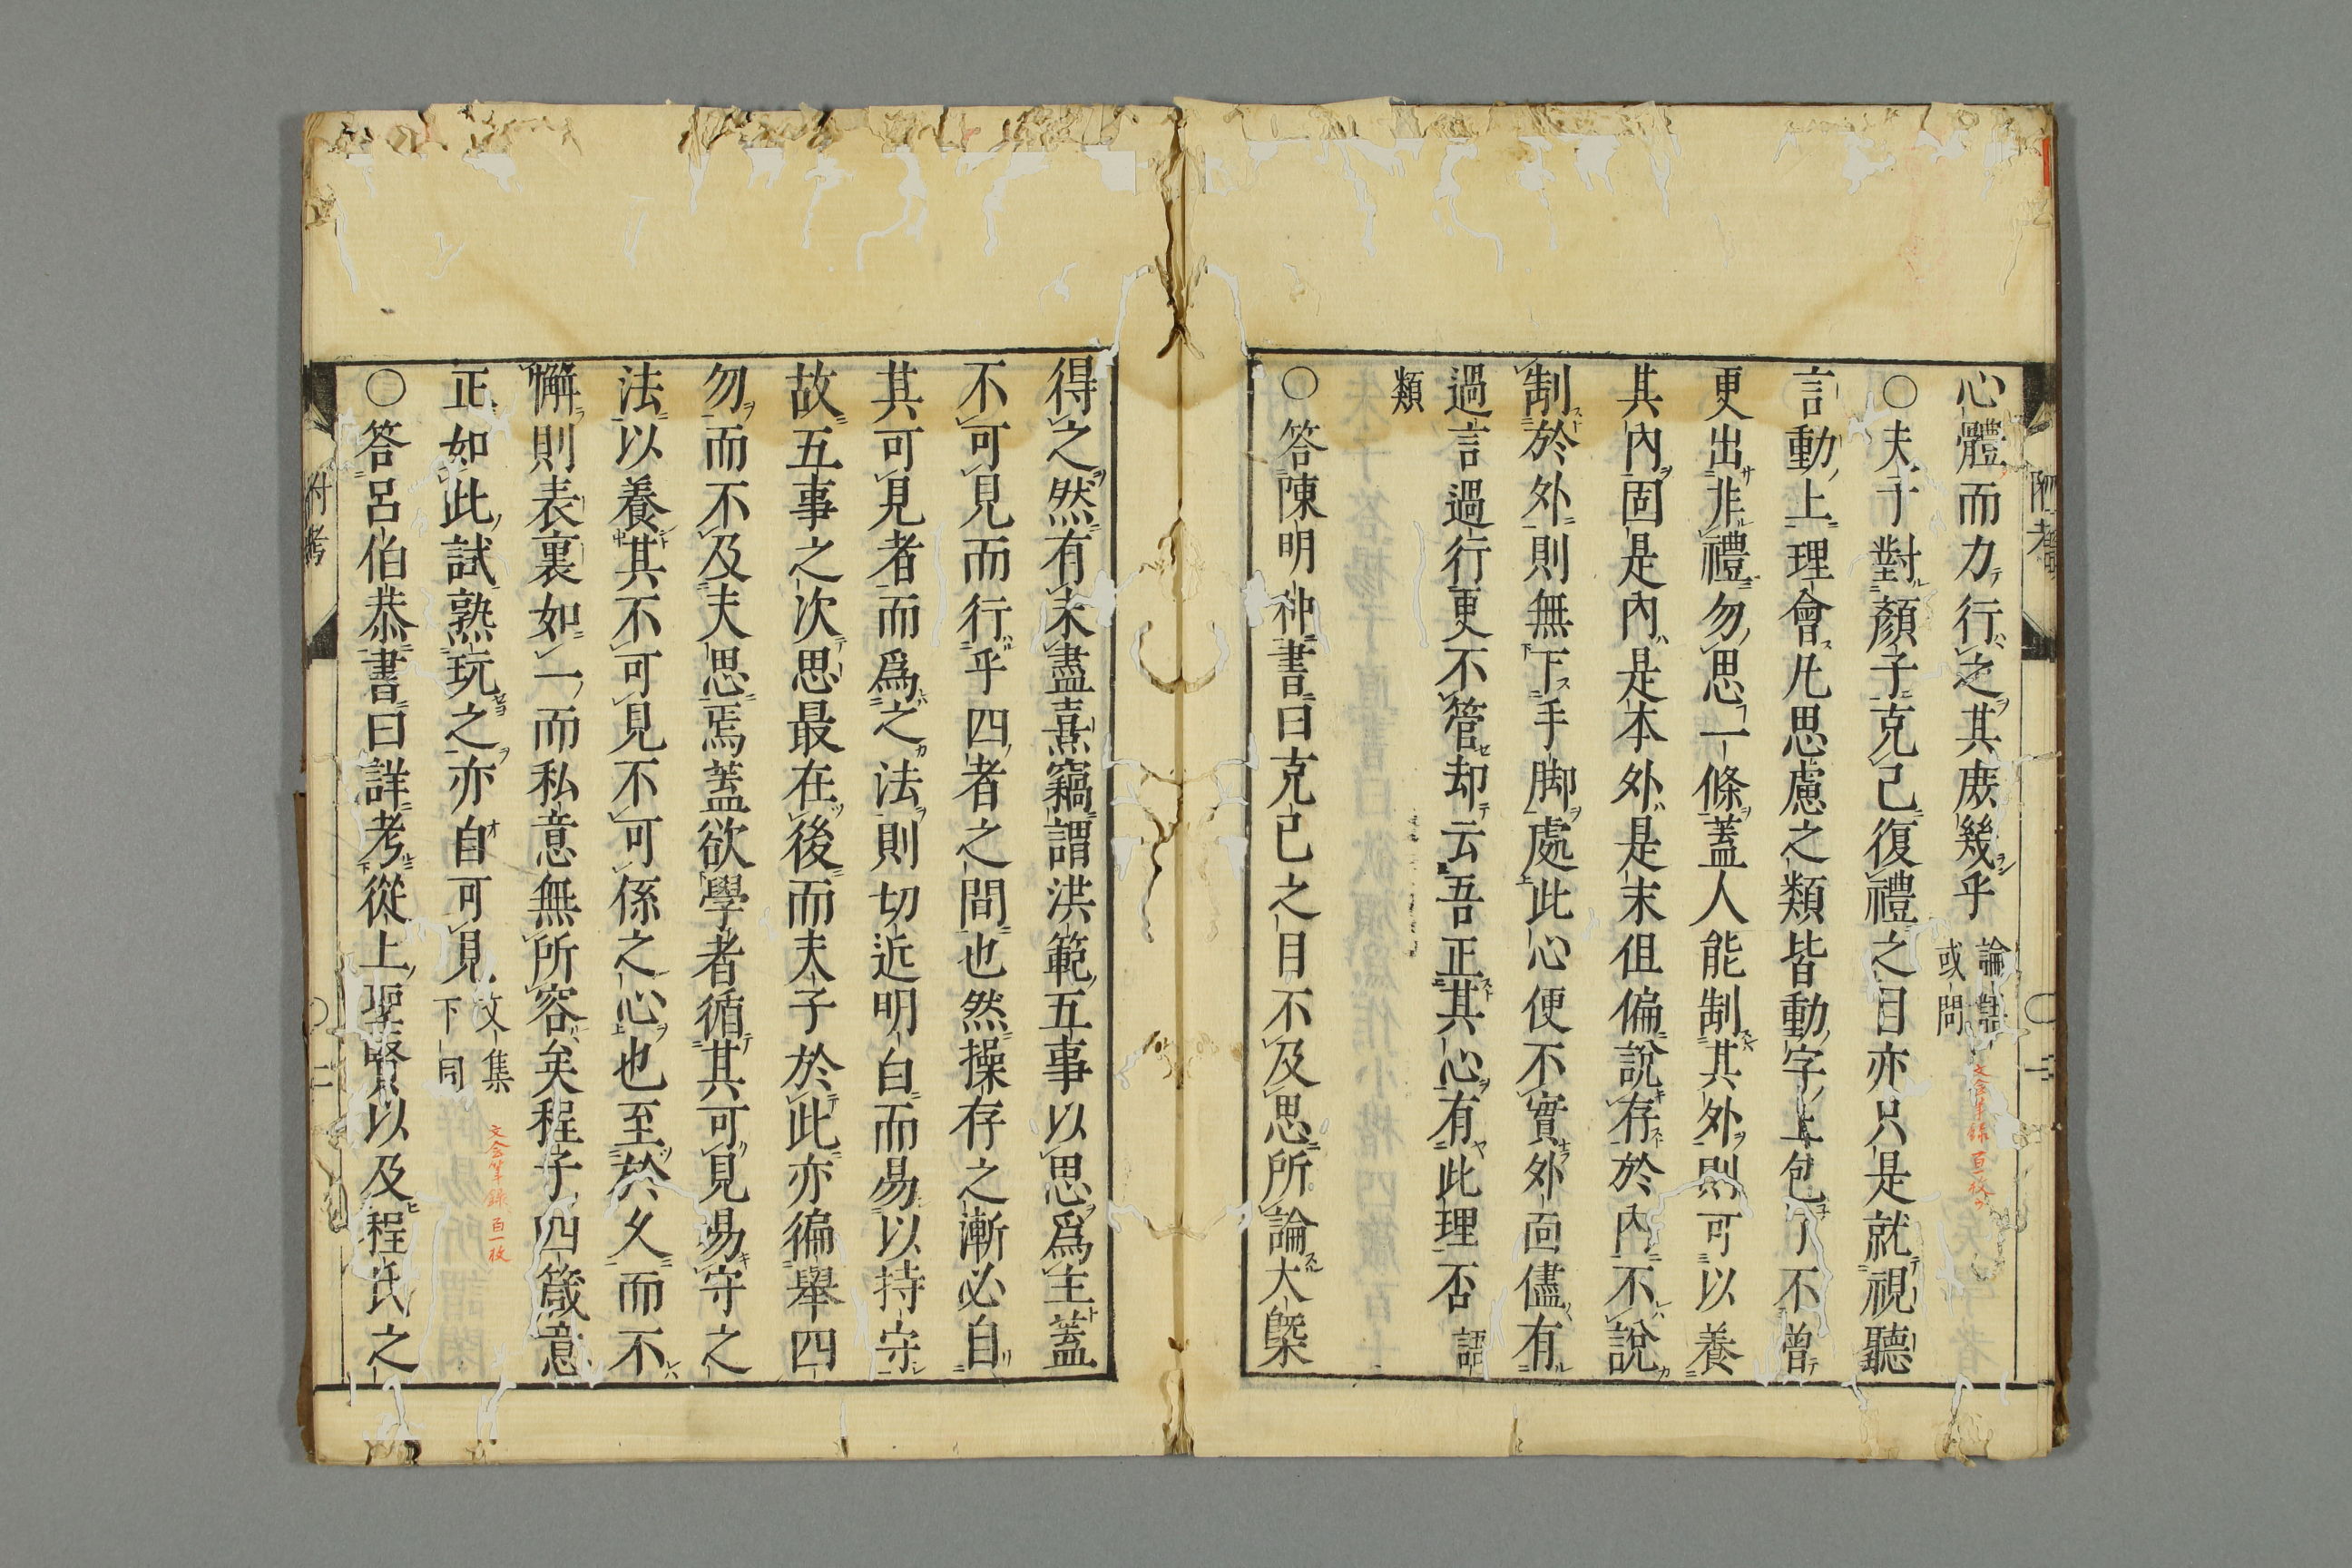 心體而力行之其庶幾乎 論語
或問
文會筆錄 百一枚
○夫子對顏子克己復禮之目亦只是就視聽
言動上理會凡思慮之類皆動字上包了不曾
更出非禮勿思一條蓋人能制其外則可以養
其內固是內是本外是末但偏說存於內不說
制於外則無下手脚處此心便不實外面儘有
過言過行更不管却云吾正其心有此理否 語
類
○答陳明仲書曰克己之目不及思所論大槩
得之然有未盡熹竊謂洪範五事以思爲主蓋
不可見而行乎四者之間也然操存之漸必自
其可見者而爲之法則切近明白而易以持守
故五事之次思最在後而夫子於此亦徧舉四
勿而不及夫思焉蓋欲學者循其可見易守之
法以養其不可見不可係之心也至於久而不
懈則表裏如一而私意無所容矣程子四箴意
正如此試熟玩之亦自可見 文集
下同
文會筆錄 百一枚
○答呂伯恭書曰詳考從上聖賢以及程氏之
附考 ○二